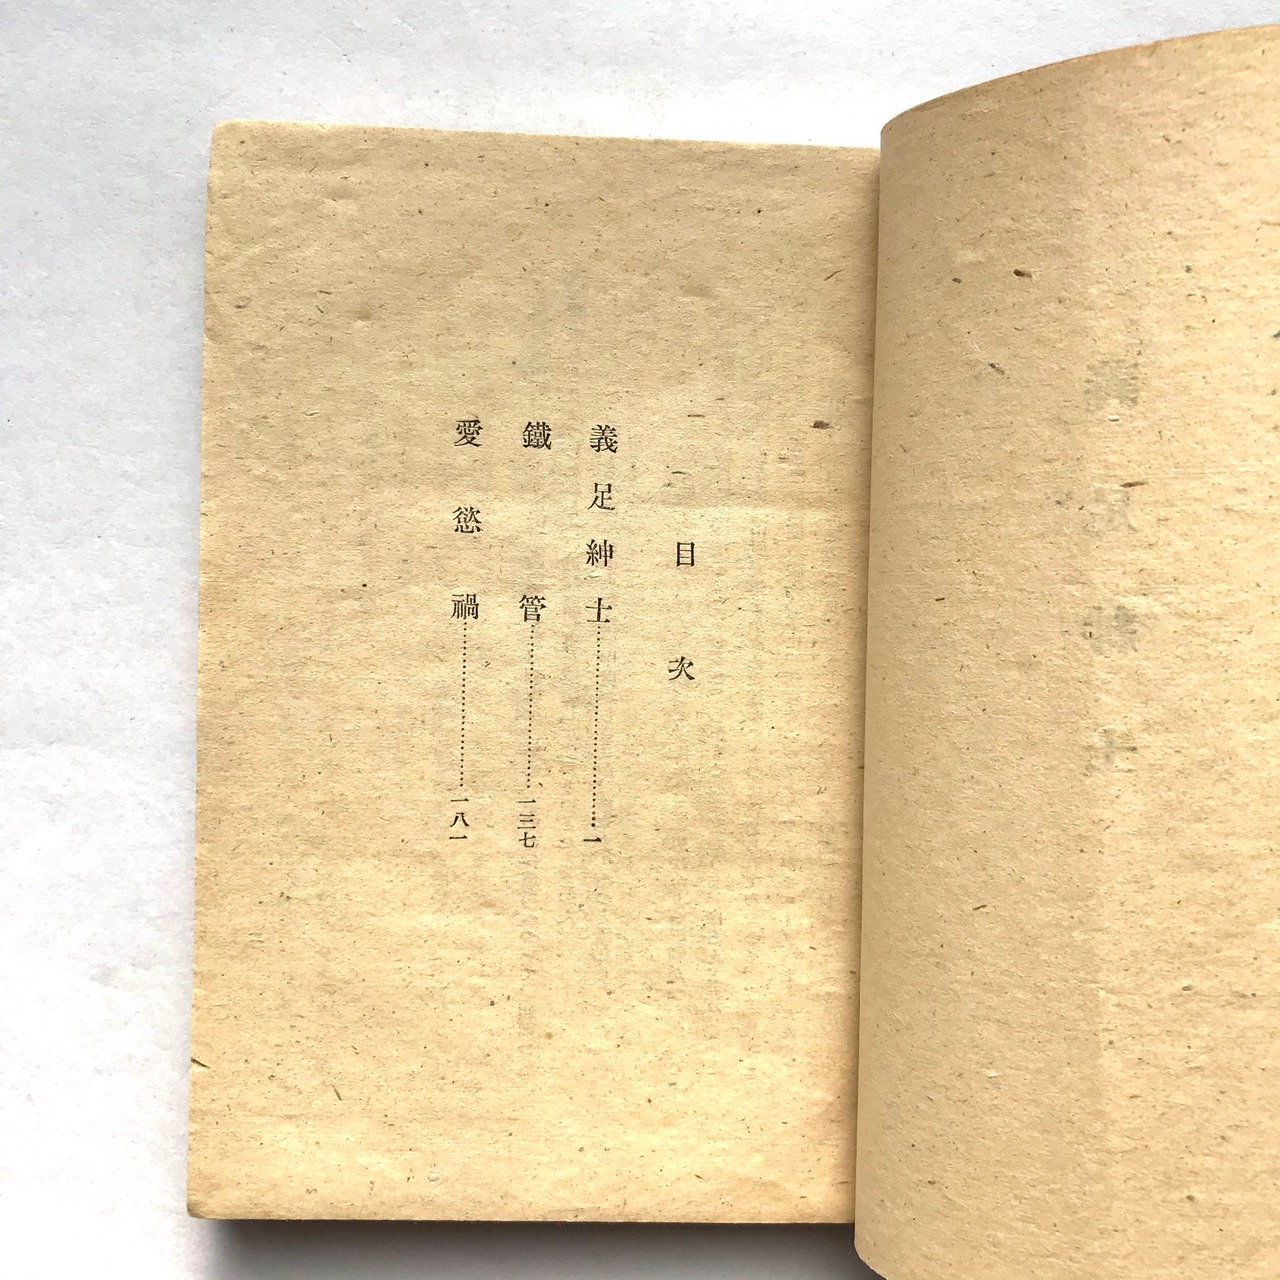 目次
義足紳士……………………一
鐵管………………一三七
愛慾禍………………一八一